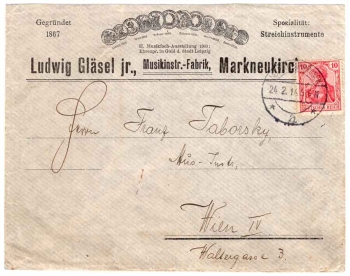 Gegründet
1867
Spezialität:
Streichinstrumente
II. Musikfach-Ausstellung 1901:
Ehrenpr. in Gold d. Stadt Leipzig
Ludwig Gläsel jr., Musikinstr.-Fabrik, Markneukirc
10 10
24. 2. 14
Herrn Franz Taborsky,
Mus-Instr.
Wien IV
Waltergasse 3.